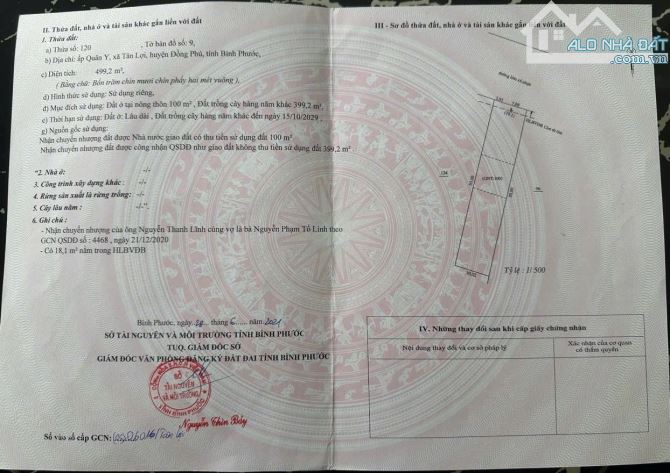 II. Thửa đất, nhà ở và tài sản khác gắn liền với đất
1. Thửa đất:
a) Thửa số: 120 , Tờ bản đồ số: 9,
b) Địa chỉ: ấp Quân Y, xã Tân Lợi, huyện Đồng Phú, tỉnh Bình Phước,
c) Diện tích: 499,2 m²,
( Bằng chữ: Bốn trăm chín mươi chín phảy hai mét vuông ),
d) Hình thức sử dụng: Sử dụng riêng,
đ) Mục đích sử dụng: Đất ở tại nông thôn 100 m² , Đất trồng cây hàng năm khác 399,2 m²,
e) Thời hạn sử dụng: Đất ở: Lâu dài , Đất trồng cây hàng năm khác đến ngày 15/10/2029 ,
g) Nguồn gốc sử dụng:
Nhận chuyển nhượng đất được Nhà nước giao đất có thu tiền sử dụng đất 100 m²
Nhận chuyển nhượng đất được công nhận QSDĐ như giao đất không thu tiền sử dụng đất 399,2 m² .
*2. Nhà ở: -/-
3. Công trình xây dựng khác: -/-
4. Rừng sản xuất là rừng trồng: -/-
5. Cây lâu năm: -/-
6. Ghi chú :
- Nhận chuyển nhượng của ông Nguyễn Thanh Lĩnh cùng vợ là bà Nguyễn Phạm Tố Linh theo
GCN QSDĐ số : 4468 , ngày 21/12/2020
- Có 18,1 m² nằm trong HLBVĐB
Bình Phước, ngày tháng 6 năm 2021
SỞ TÀI NGUYÊN VÀ MÔI TRƯỜNG TỈNH BÌNH PHƯỚC
TUQ. GIÁM ĐỐC SỞ
GIÁM ĐỐC VĂN PHÒNG ĐĂNG KÝ ĐẤT ĐAI TỈNH BÌNH PHƯỚC
SỞ
TÀI NGUYÊN
VÀ MÔI TRƯỜNG
TỈNH BÌNH PHƯỚC
Nguyễn Thìn Bảy
Số vào sổ cấp GCN:
III - Sơ đồ thửa đất, nhà ở và tài sản khác gắn liền với đất
ALO NHÀ ĐẤT
.com.vn
HLBVĐB
Tỷ lệ : 1/ 500
IV. Những thay đổi sau khi cấp giấy chứng nhận
Nội dung thay đổi và cơ sở pháp lý
Xác nhận của cơ quan
có thẩm quyền